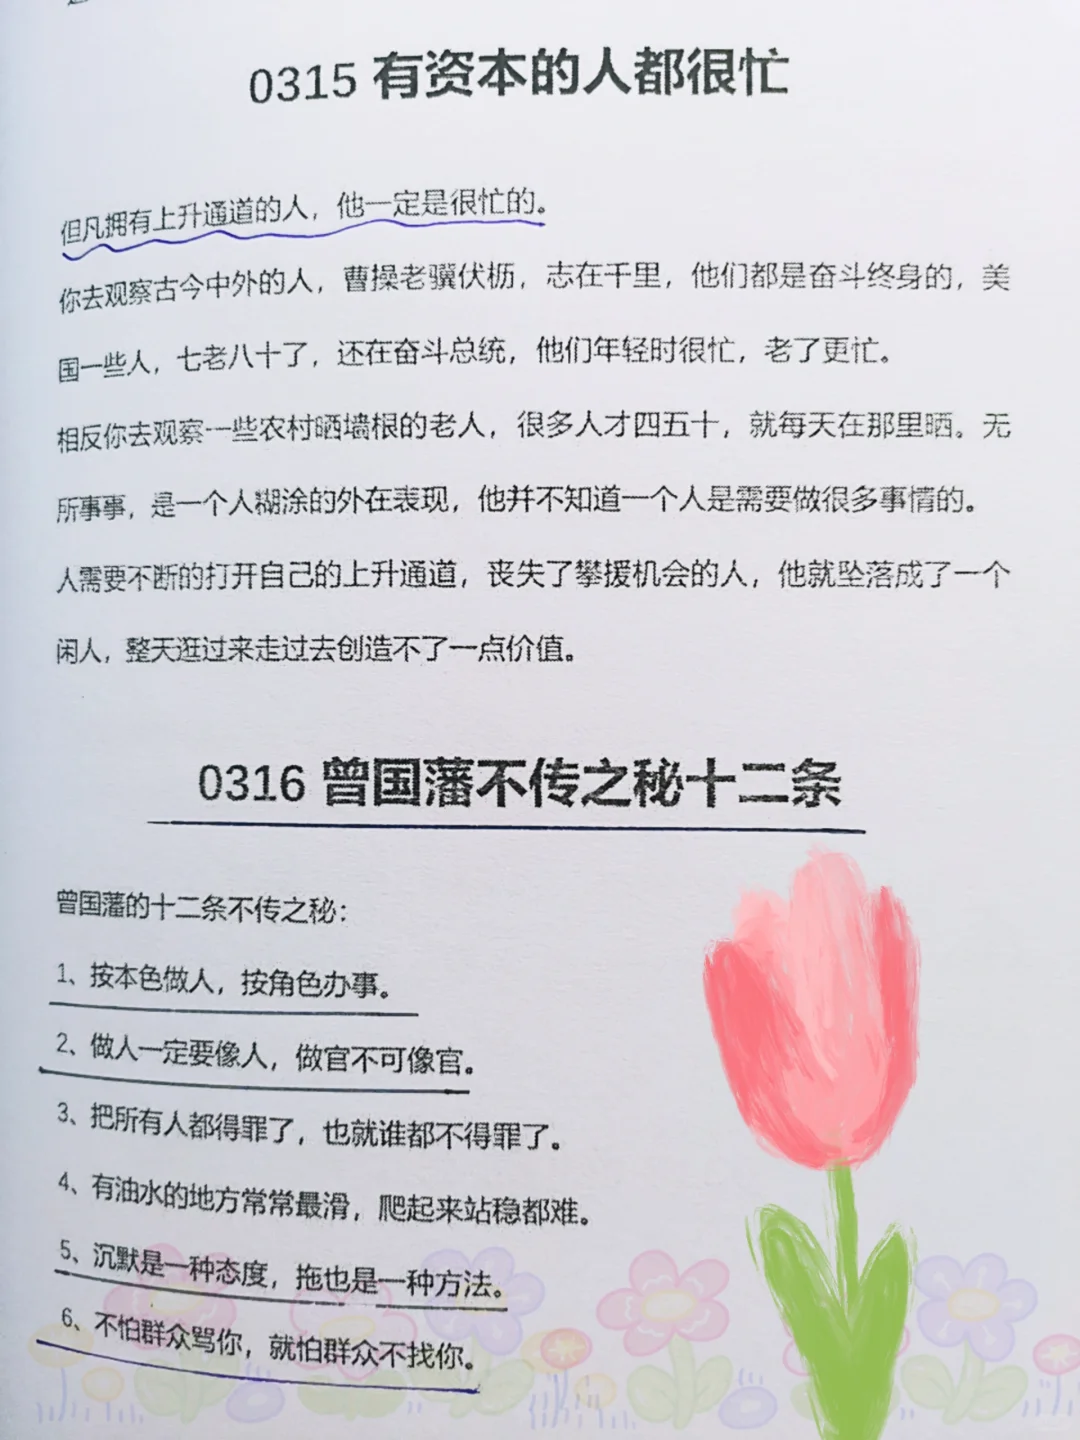 0315 有资本的人都很忙
但凡拥有上升通道的人，他一定是很忙的。
你去观察古今中外的人，曹操老骥伏枥，志在千里，他们都是奋斗终身的，美
国一些人，七老八十了，还在奋斗总统，他们年轻时很忙，老了更忙。
相反你去观察一些农村晒墙根的老人，很多人才四五十，就每天在那里晒。无
所事事，是一个人糊涂的外在表现，他并不知道一个人是需要做很多事情的。
人需要不断的打开自己的上升通道，丧失了攀援机会的人，他就坠落成了一个
闲人，整天逛过来走过去创造不了一点价值。
0316 曾国藩不传之秘十二条
曾国藩的十二条不传之秘：
1、按本色做人，按角色办事。
2、做人一定要像人，做官不可像官。
3、把所有人都得罪了，也就谁都不得罪了。
4、有油水的地方常常最滑，爬起来站稳都难。
5、沉默是一种态度，拖也是一种方法。
6、不怕群众骂你，就怕群众不找你。